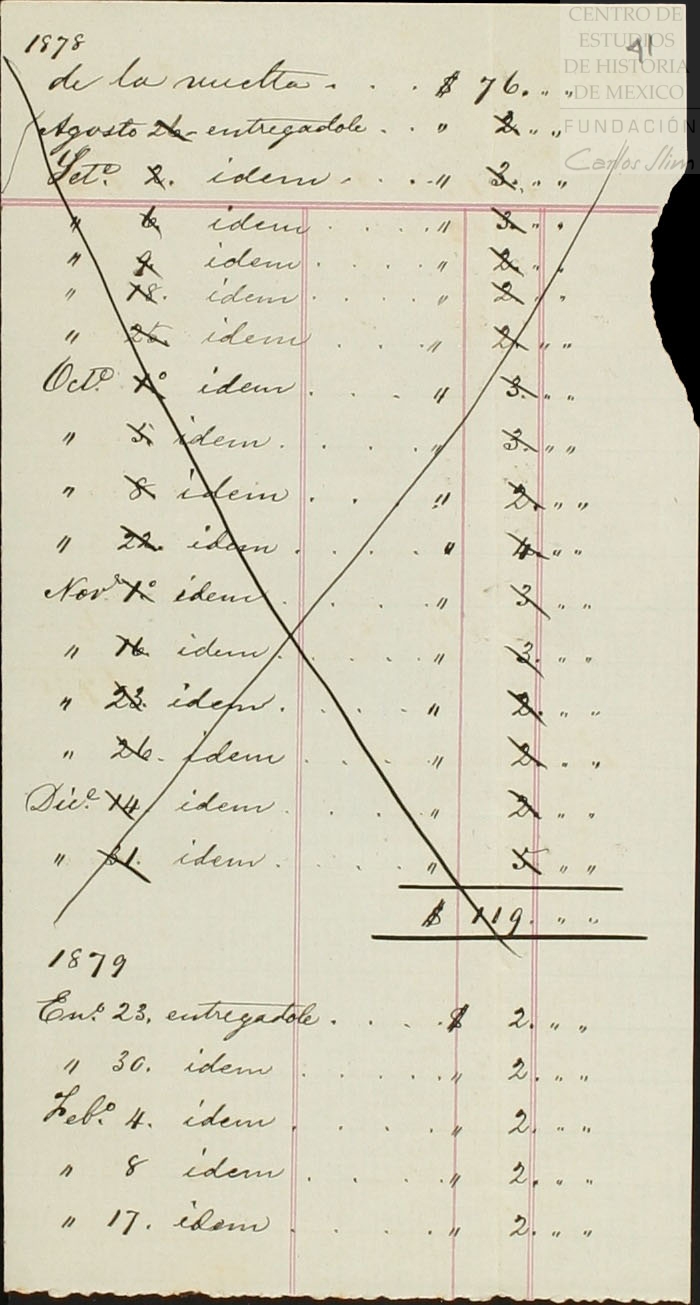 CENTRO DE
ESTUDIOS
DE HISTORIA
DE MEXICO
FUNDACIÓN
Carlos Slim
41
1878
de la vuelta . . . $ 76. " "
Agosto 26 - entregadole . . " 2. " "
Set.e 2. idem . . . " 3. " "
" 6. idem . . . . " 3. " "
" 9. idem . . . . " 2. " "
" 18. idem . . . . " 2. " "
" 25. idem . . . " 2. " "
Oct.e 1.o idem . . . " 3. " "
" 5. idem . . . . " 3. " "
" 8. idem . . . " 2. " "
" 22. idem . . . . " 4. " "
Nov.e 1.o idem . . . . " 3. " "
" 16. idem . . . . " 3. " "
" 23. idem . . . . " 2. " "
" 26. idem . . . . " 2. " "
Dic.e 14. idem . . . . " 2. " "
" 31. idem . . . . " 5. " "
$ 119. " "
1879
En.o 23. entregadole . . . . $ 2. " "
" 30. idem . . . . . " 2. " "
Feb.o 4. idem . . . . . " 2. " "
" 8 idem . . . . " 2. " "
" 17. idem . . . . " 2. " "